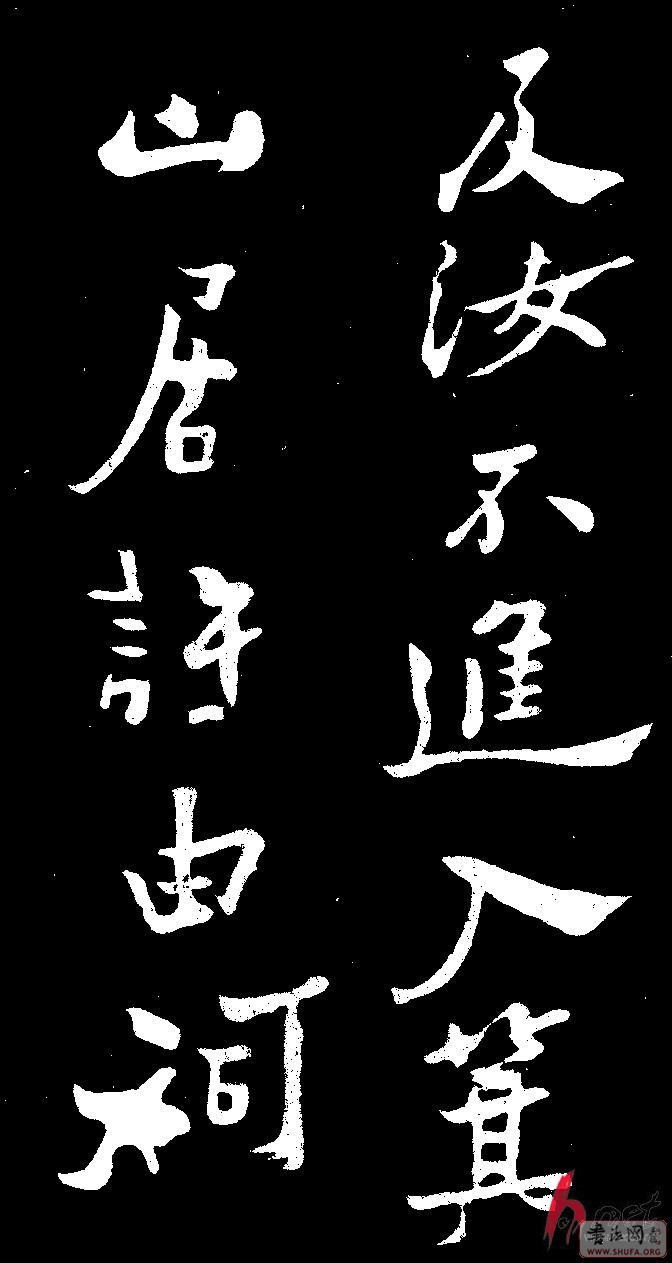 及汝不進入箕
山居許由祠
書法网
WWW.SHUFA.ORG